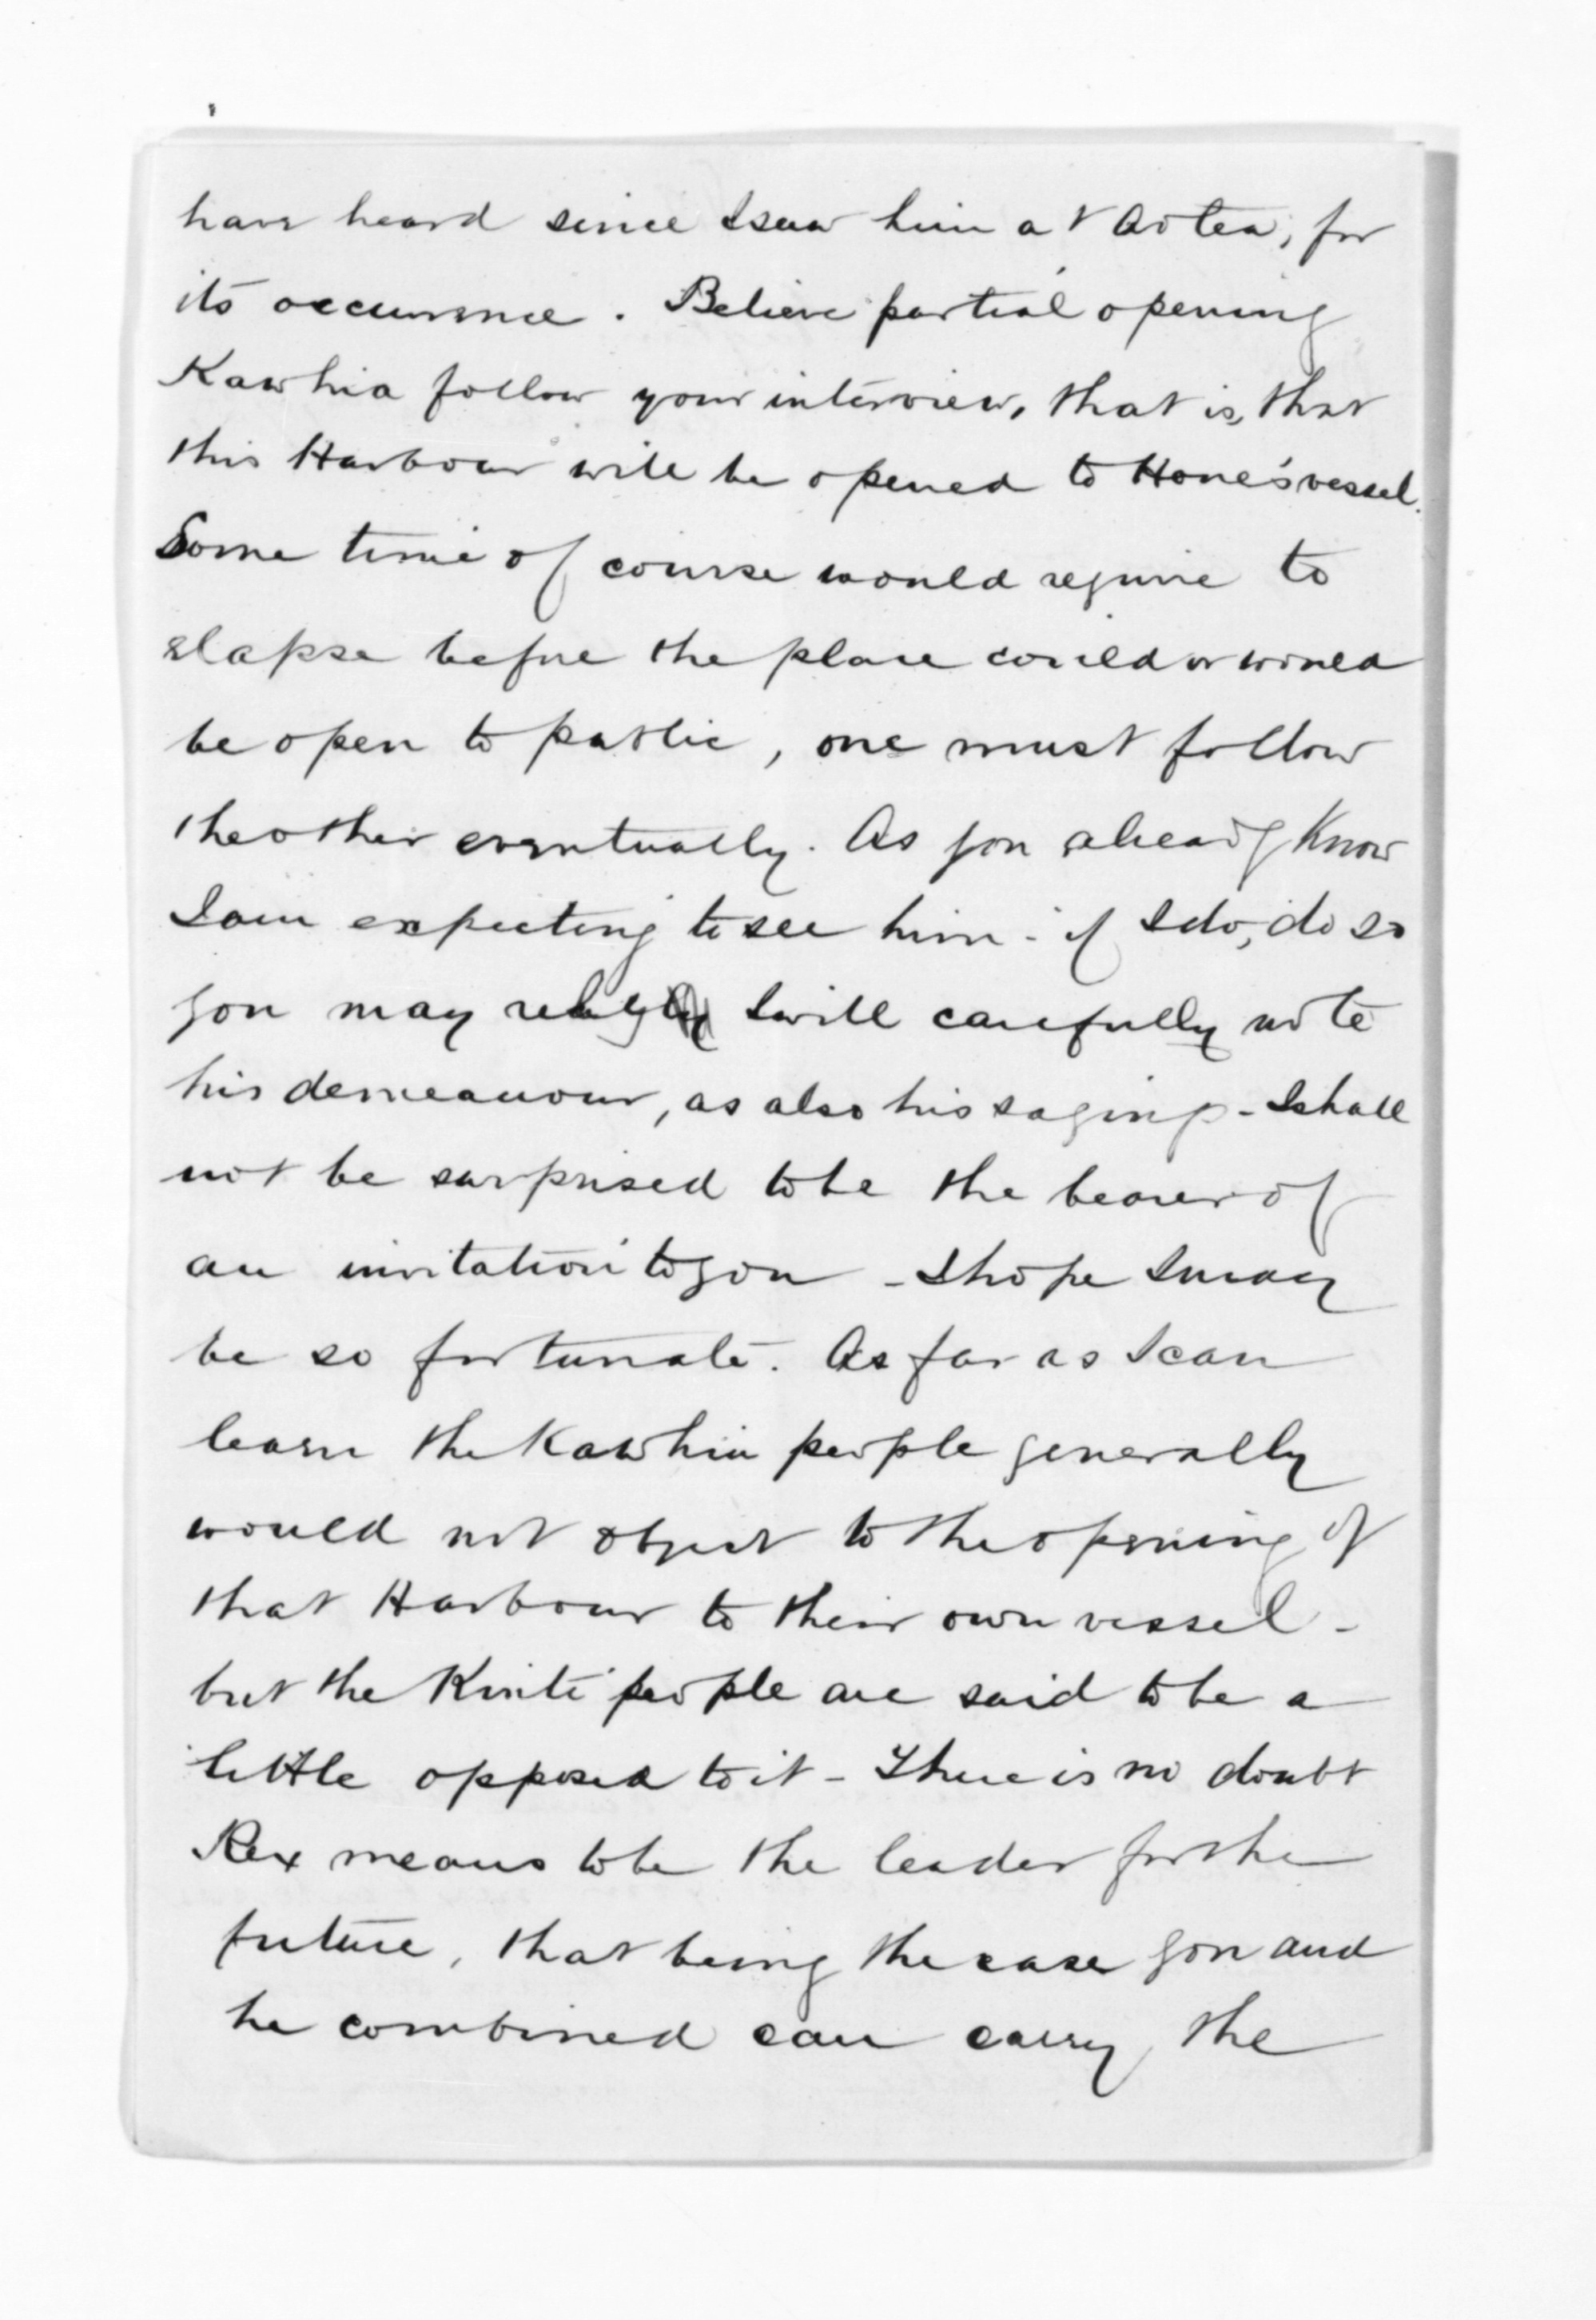 have heard since I saw him at Aotea, for
its occurrence. Believe partial opening
Kawhia follow your interview, that is, that
this Harbour will be opened to Hone's vessel.
Some time of course would require to
elapse before the place could or would
be open to public, one must follow
the other eventually. As you already know
I am expecting to see him - if I do, do so
you may rely I will carefully note
his demeanour, as also his sayings - I shall
not be surprised to be the bearer of
an invitation to you - I hope I may
be so fortunate. As far as I can
learn the Kawhia people generally
would not object to the opening of
that Harbour to their own vessel -
but the Kuiti people are said to be a
little opposed to it - There is no doubt
Rex means to be the leader for the
future, that being the case you and
he combined can carry the